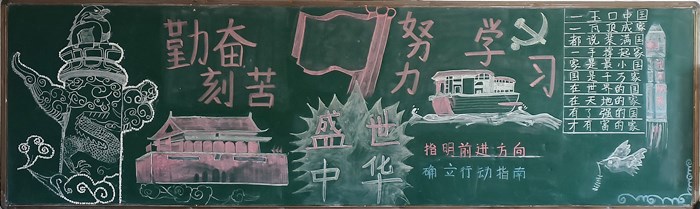 勤奋
刻苦
努力
学习
盛世
中华
指明前进方向
确立行动指南
一玉口中国
一瓦顶成家
都说装满国
一手撑起家
家是最小国
国是千万家
在世界的国
在天地的家
有了强的国
才有富的家